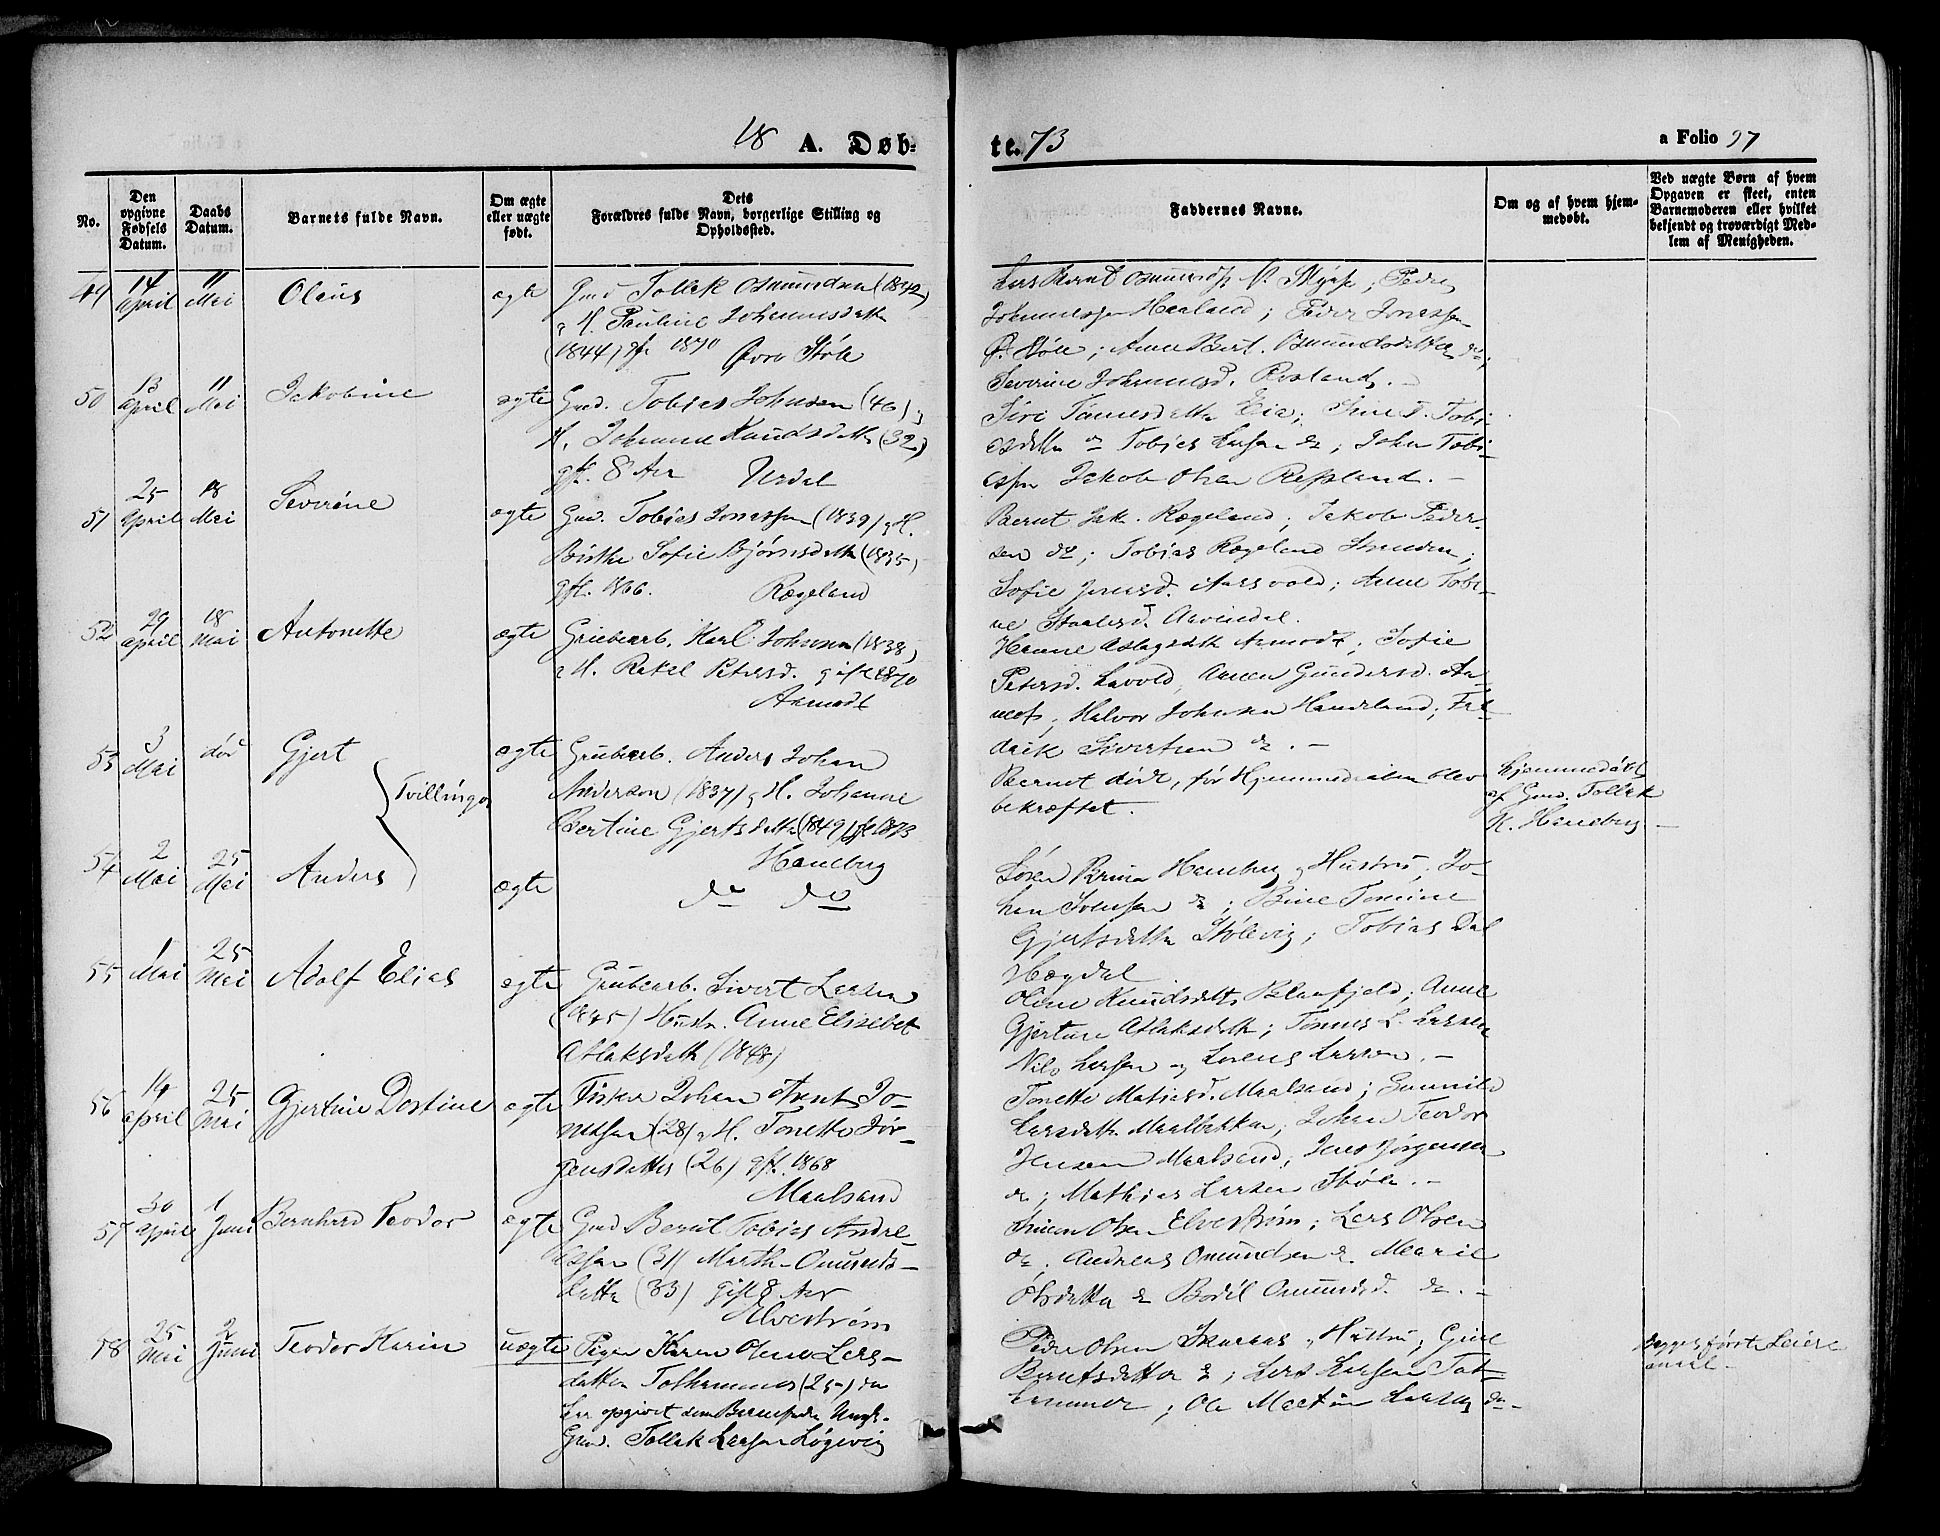 18 A. Døb-
te. 73
a Folio 97
No.
Den opgivne Fødsels Datum.
Daabs Datum.
Barnets fulde Navn.
Om ægte eller uægte født.
Dets Forældres fulde Navn, borgerlige Stilling og Opholdssted.
Faddernes Navne.
Om og af hvem hjemmedøbt.
Ved uægte Børn af hvem Opgaven er skeet, enten Barnemoderen eller hvilket bekjendt og troværdigt Medlem af Menigheden.
14 April 11 Mai Olaus ægte Gmd Tollek Osmundsen (1842)
& H. Pauline Johannesdatter
(1844) gft. 1870 Øvre Støle
Johannessen Haaland; Peder Jonassen
Ø. Støle; Anne Bert. Osmundsdatter do;
Severine Johannesd. Rosland.
50 13 April 11 Mai Jakobine ægte Gmd. Tobias Johnsen (40) &
H. Johanne Knudsdatter (32)
gft. 8 Aar Urdal
Siri Tønnesdatter Eie; Anne T. Tobi-
asdatter do Tobias Larsen do; John Tobi-
assen Jakob Olsen Rossland. -
51 25 April 18 Mai Severine ægte Gmd. Tobias Jonassen (1839) & H.
Birthe Sofie Bjørnsdatter (1835)
gft. 1866. Rægeland
Bernt Jak. Rægeland; Jakob Peder-
sen do; Tobias Rægeland
Sofie Jonasd. Aarsvold; Anne Tobi-
ne
52 29 April 18 Mai Antonette ægte Grubearb. Karl Johnsen (1838)
& H. Rakel Petersd. gift 1870
Aamodt
Hanne Aslagsdatter Aamodt; Sofie
Petersd. Lavold,
Halvor Johnsen Haneland;
Sivertsen do. -
53 3 Mai død Gjert ægte Grubearb. Anders Johan
Tvillinger
Anderson (1837) & H. Johanne
Bertine Gjertsdatter (1849) gft. 1873
Haneberg
Barnet døde, før Hjemmedaaben blev
bekræftet.
hjemmedøbt
af Gmd. Tollak
K. Haneberg -
54 2 Mai 25 Mai Anders ægte do do
Søren Haneberg & Hustru; Jo-
han do; Bine Tomine
Gjertsdatter Stølevig; Tobias Dal
Hægdal
55 1 Mai 25 Mai Adolf Elias ægte Grubearb. Sivert Larsen
(1845) Hustr. Anne Elisebet
Atlaksdatter (1848)
Olene Knudsdatter Blaafjeld; Anne
Gjertine Atlaksdatter; Tønnes L. Larsen
Nils Larsen og Lorens Larsen. -
56 14 April 25 Mai Gjertine Dortine ægte Fisker Johan Arent Jo-
nassen (28) & H. Tonette Jør-
gensdatter (26) gft. 1868
Maalsand
Tonette Matiasd. Maalsand; Gunnild
Larsdatter Maalbakken; Johan Teodor
Jensen Maalsand; Jens Jørgensen
do; Mathias Larsen Støle. -
57 30 April 1 Juni Bernhard Teodor ægte Gmd Bernt Tobias Andre-
assen (31) Marthe Omunds-
datter (33) gift 8 Aar
Elvestrøm
Olsen Elvestrøm; Lars Olsen
do; Andreas Omundsen do Marie
Olsdatter do Bodil Omundsd. do. -
58 25 Mai 2 Juni Teodor Karin uægte Pigen Karen Oline Lars-
datter Tolhammer (25) der
har opgivet som Barnefader Ungk.
Gmd. Tollak Larsen Løgevig
Peder Olsen & Hustru; Gine
Berntsdatter do; Lars Larsen Tol-
hammer; Ole Martin Larsen do -
Begges første Leier-
maal -